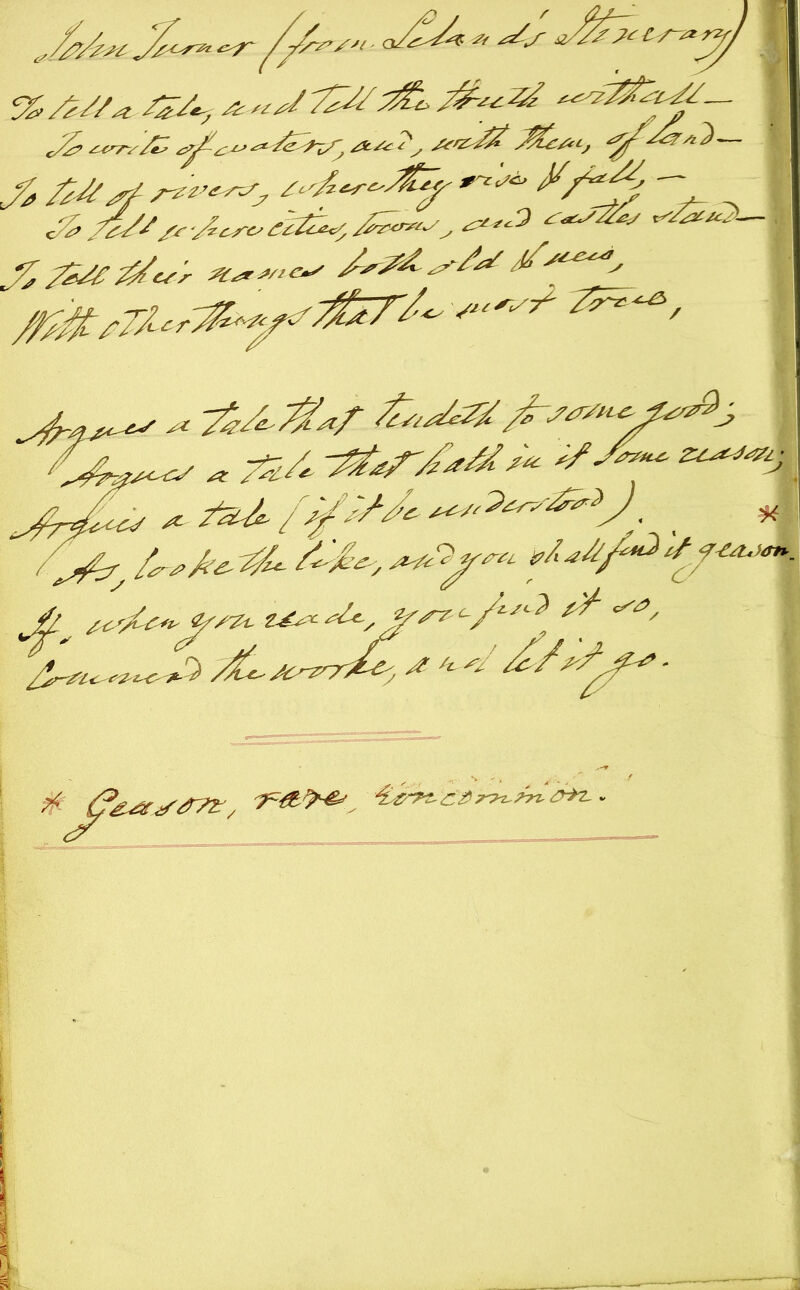 John Turner (from Leland's Itinerary)
To tell a tale, and tell the truth withall —
To write of waters, and, with them, of land —
To tell of rivers, where they rise & fall, —
To tell where cities, towns, and castles stand —
To tell their names both old & new,
With other things that be most true,
Argues a tale that tendeth to some good;
Argues a tale that hath in it some reason;
Argues a tale (if it be understood)
As, looke the like, and you shall find it geason. *
If, when you reade, you find it so,
Commend the worke, and let it go.
* Geason, rare, uncommon.